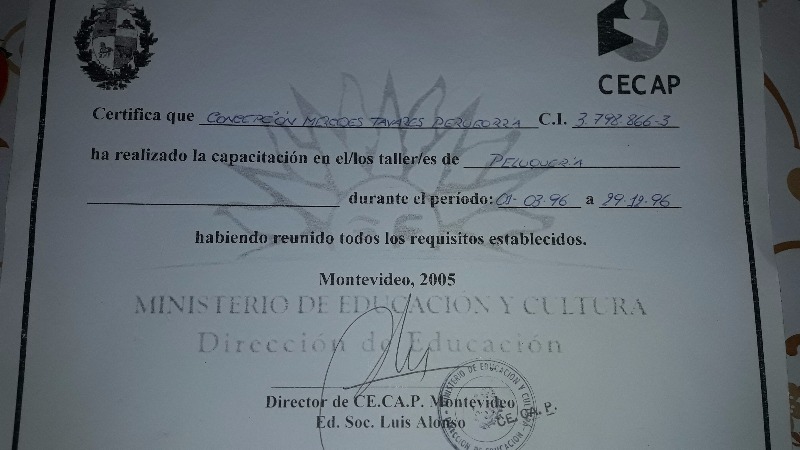 CECAP
Certifica que CONCEPCIÓN MERCEDES TAVARES C.I. 3.798.866-3
ha realizado la capacitación en el/los taller/es de PELUQUERÍA
durante el período: 01-03-96 a 29-12-96
habiendo reunido todos los requisitos establecidos.
Montevideo, 2005
MINISTERIO DE EDUCACIÓN Y CULTURA
Dirección de Educación
Director de CE.CA.P. Montevideo
Ed. Soc. Luis Alonso
MINISTERIO DE EDUCACIÓN Y CULTURA
CE. CA. P.
DIRECCIÓN DE EDUCACIÓN